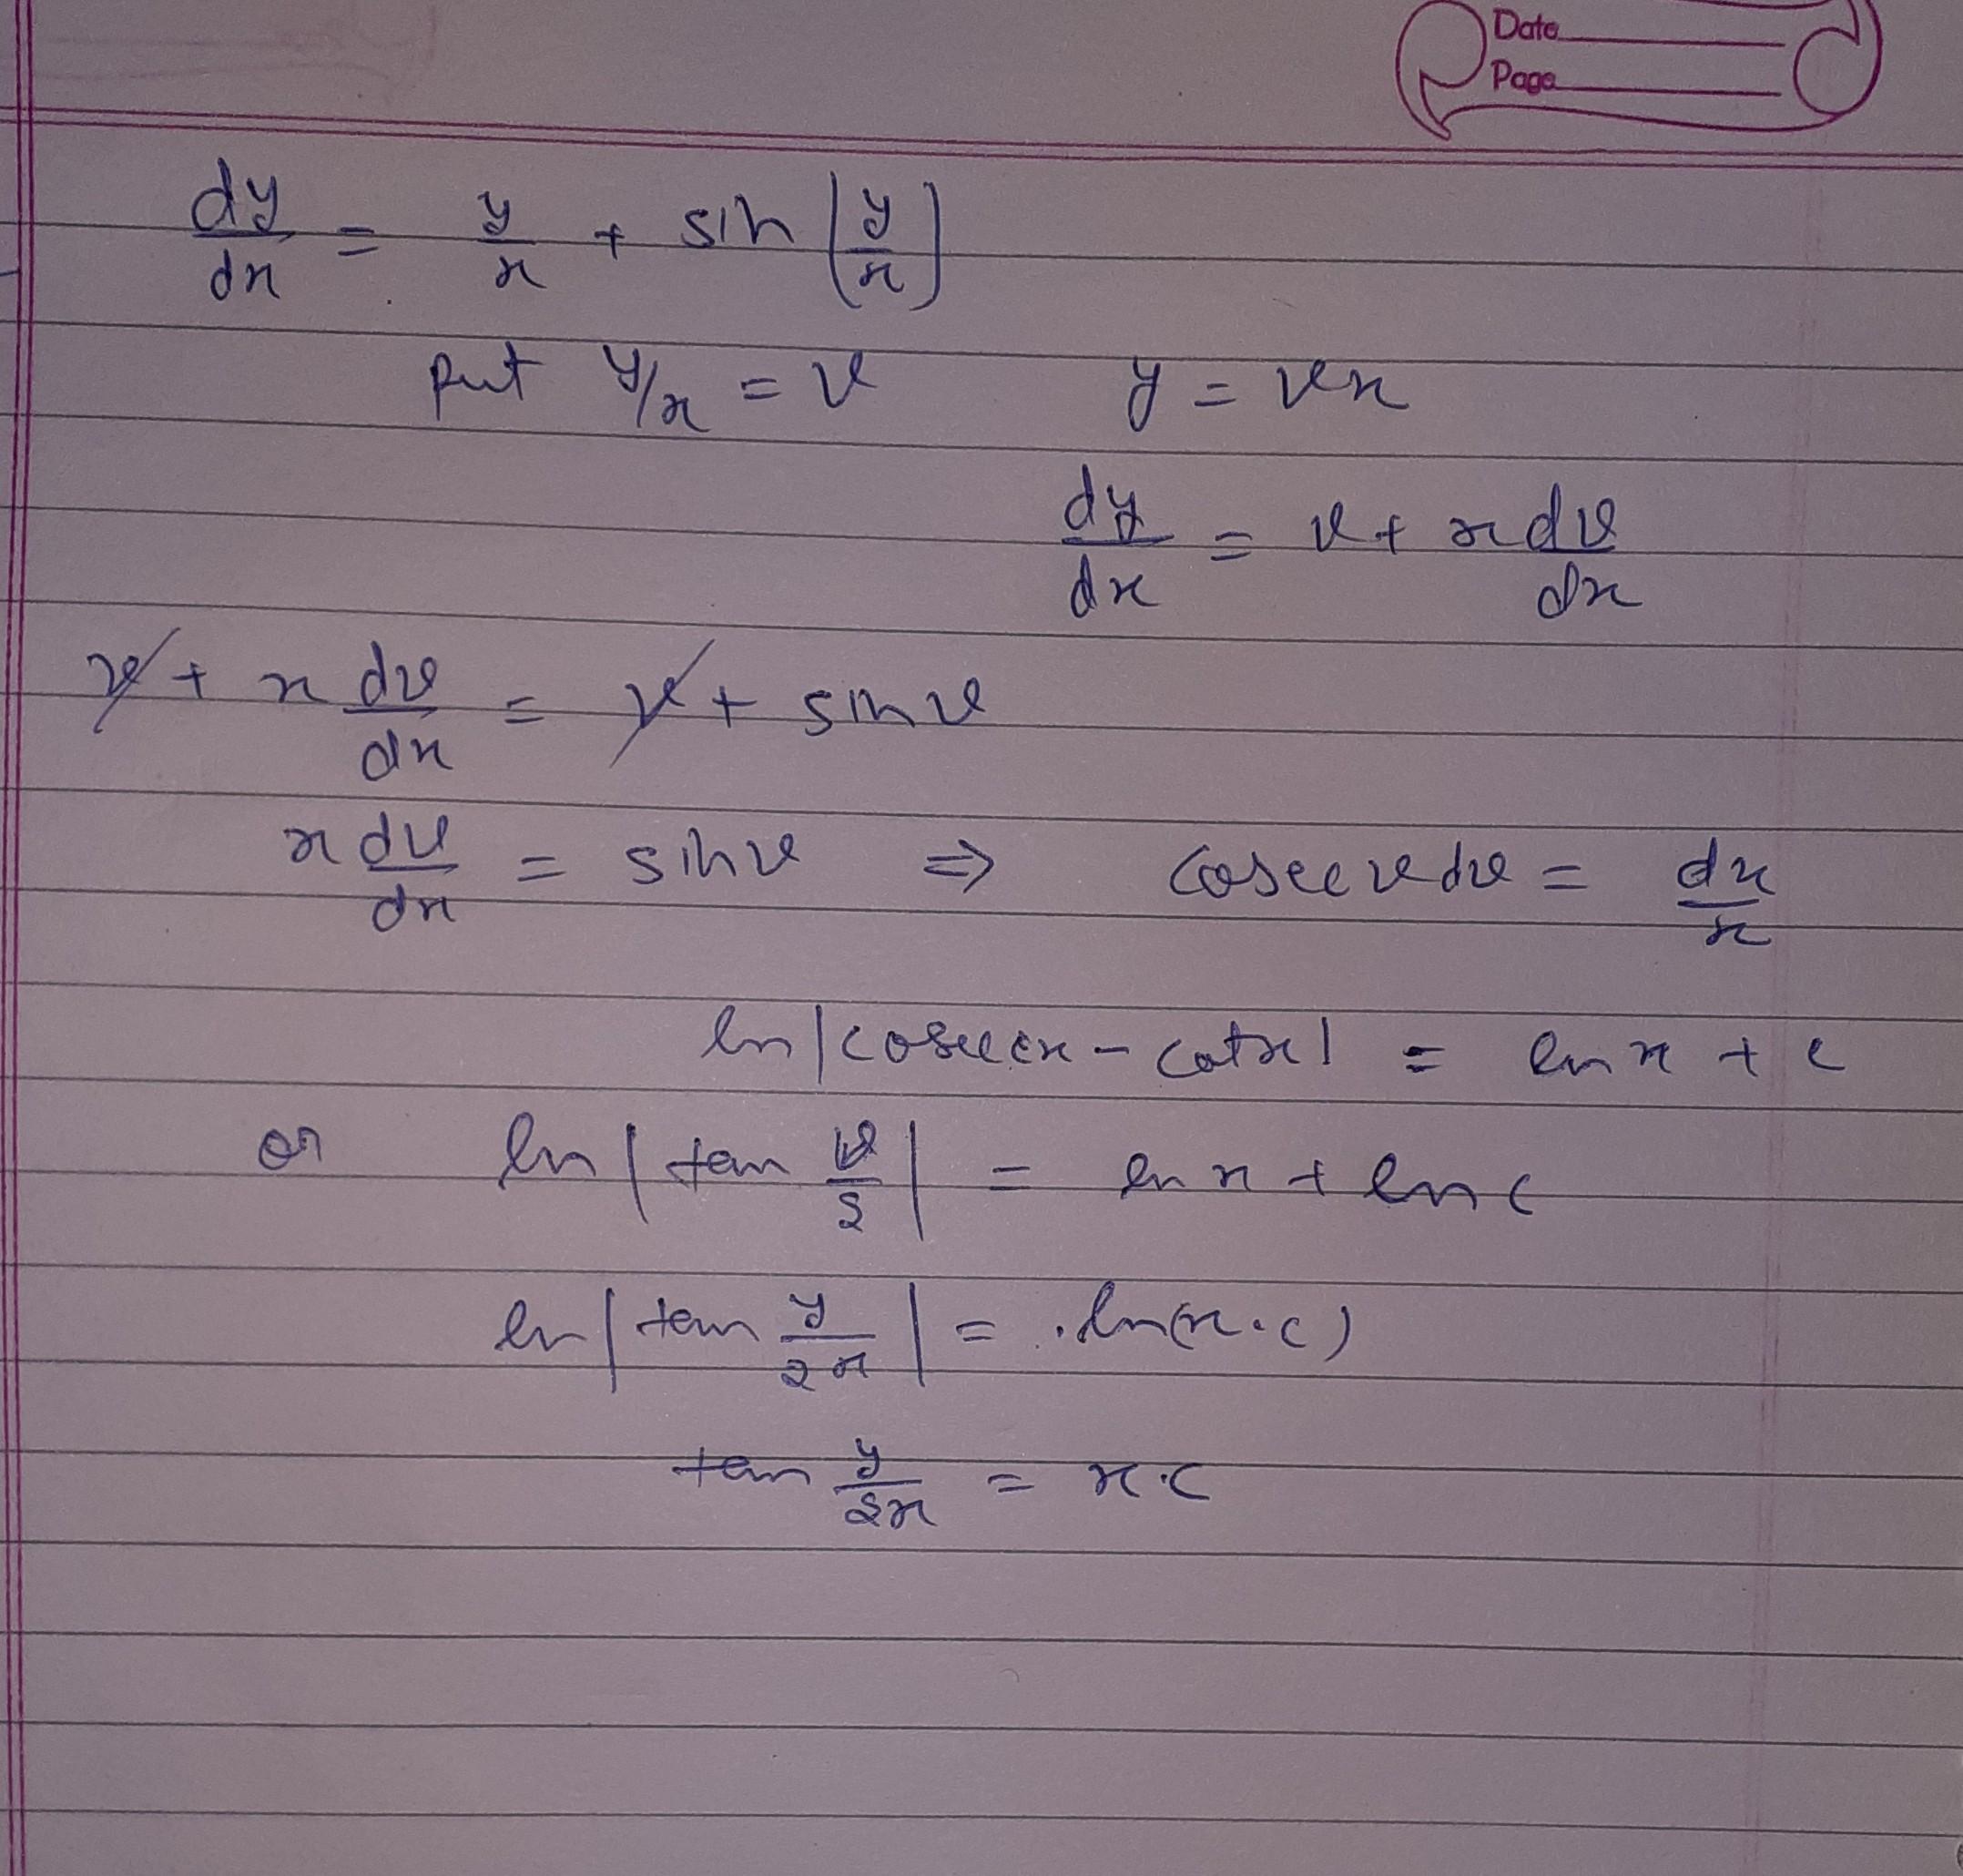 Date
Page
dy/dx = y/x + sin(y/x)
put y/x = v    y = vx
dy/dx = v + x dv/dx
v + x dv/dx = v + sin v
x dv/dx = sin v ⇒ cosec v dv = dx/x
ln|cosec x - cot x| = ln x + c
or ln|tan v/2| = ln x + ln c
ln|tan y/2x| = ln(x.c)
tan y/2x = x.c